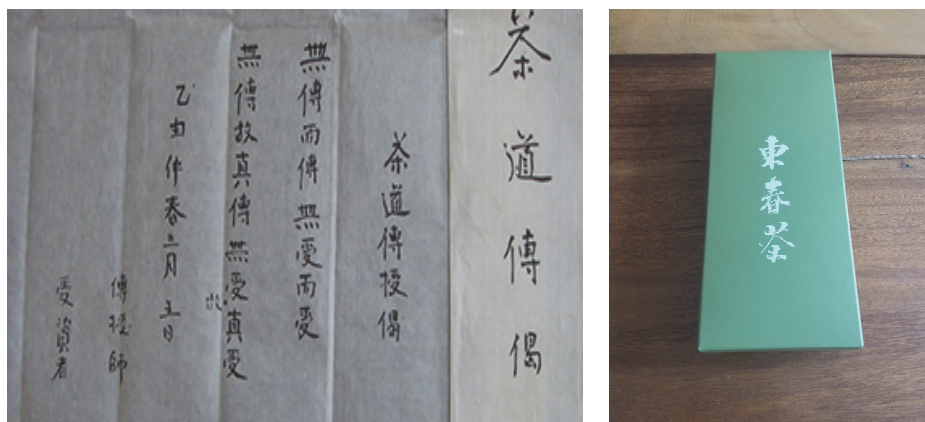 茶道傳偈
茶道傳授偈
無傳而傳無受而受
無傳故真傳無受真受
春三月
傳授師
受資者
東春茶